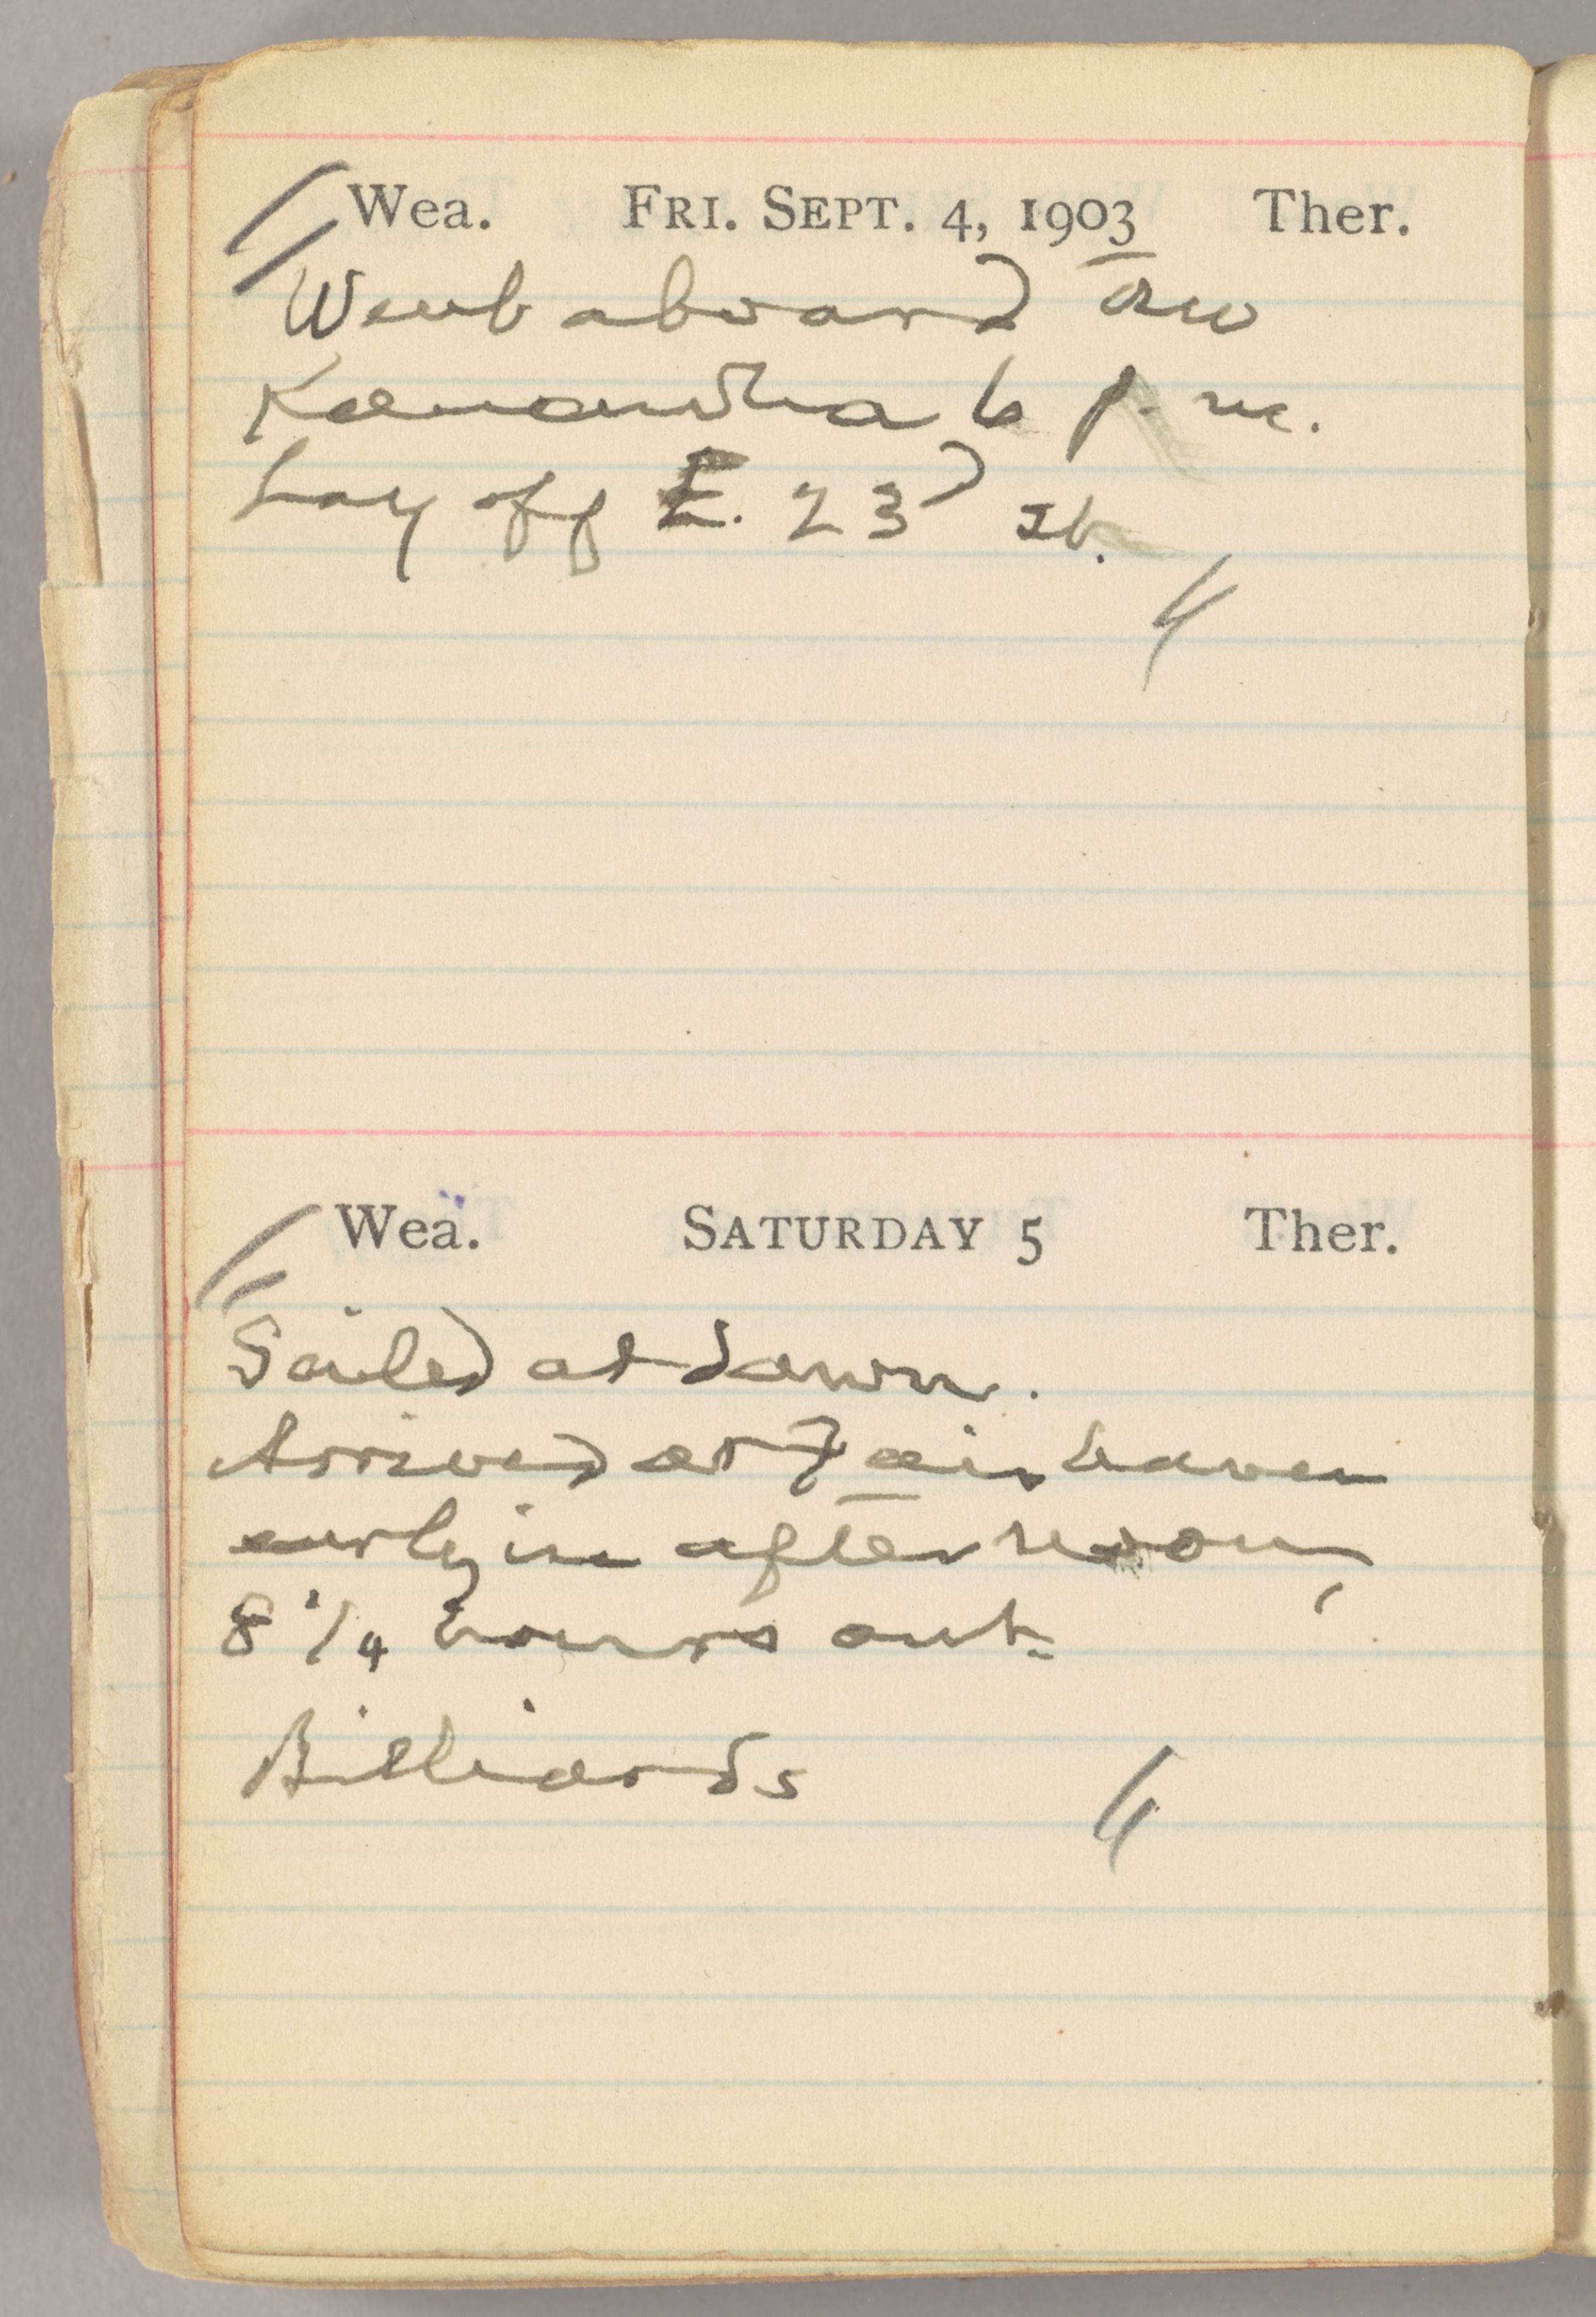 Wea. FRI. SEPT. 4, 1903 Ther.
Went aboard
Kanawha 6 p. m.
Lay off E. 23d St.
Wea. SATURDAY 5 Ther.
Sailed at dawn.
Arrived at Fairhaven
early in afternoon,
8 1/4 hours out.
Billiards